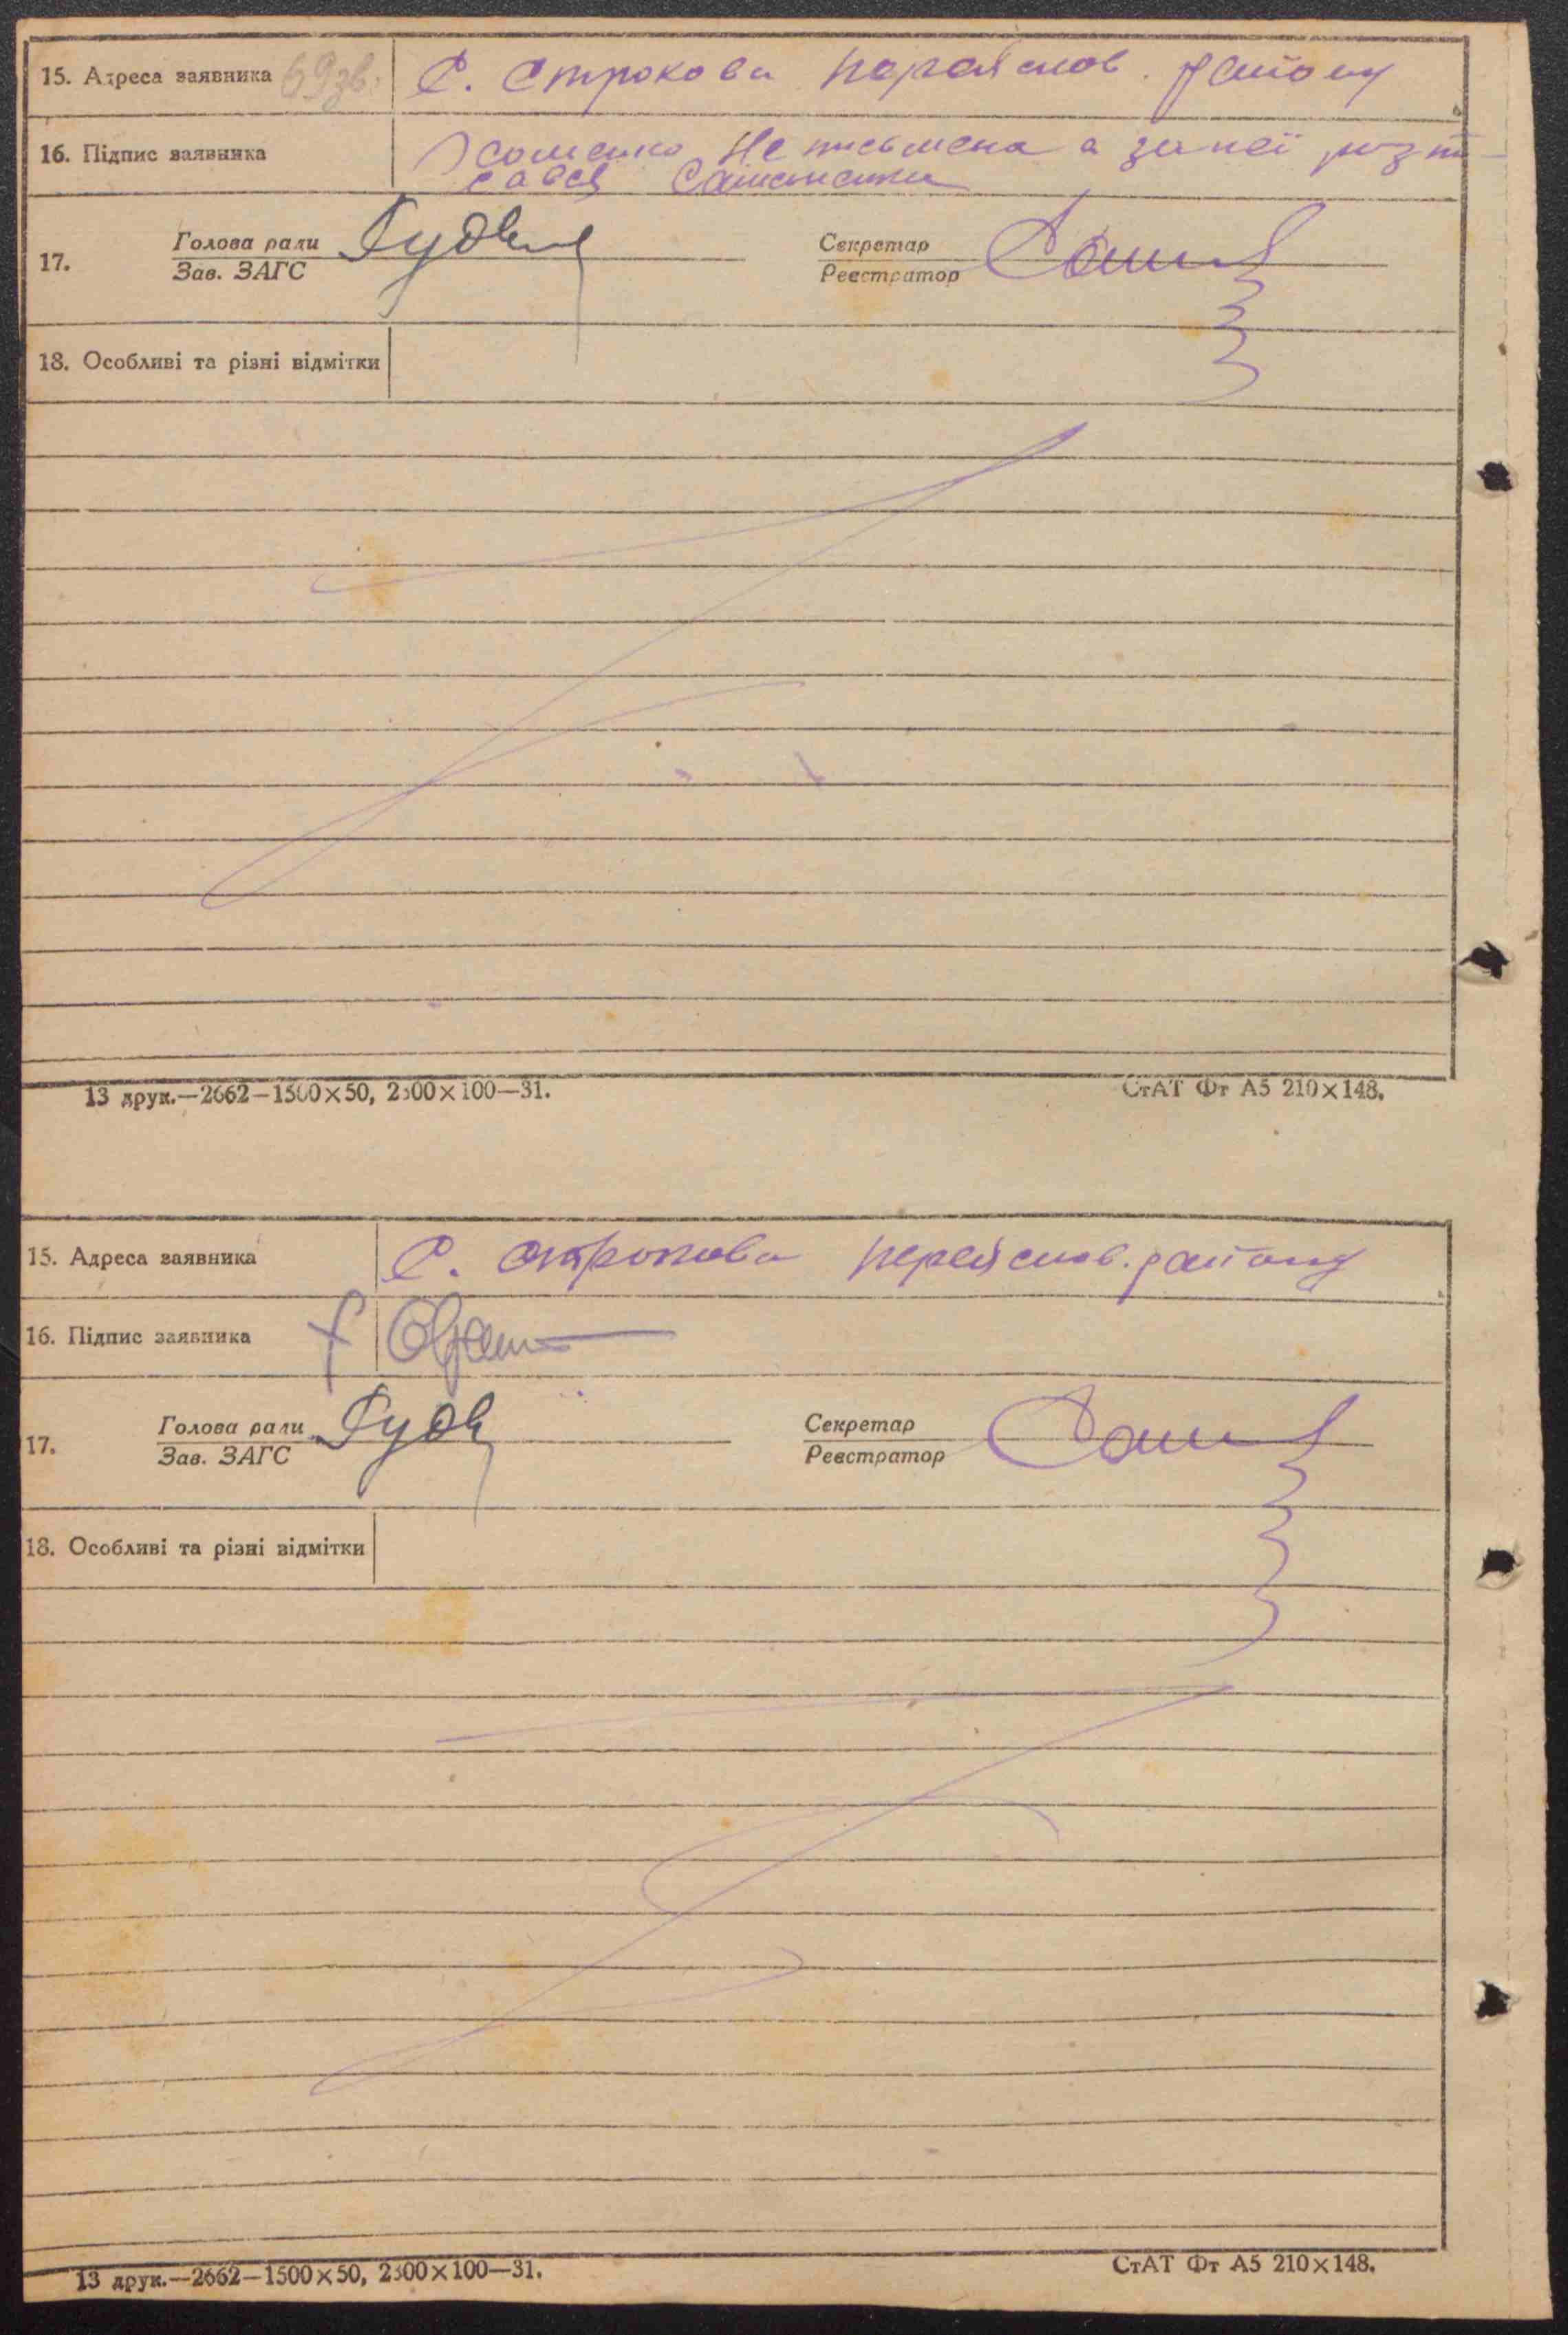 15. Адреса заявника 69зв. С. Строкова Переяслов. району
16. Підпис заявника Не письмена а за неї розпи-
сався
Голова ради Секретар
17.
Зав. ЗАГС Реєстратор
18. Особливі та різні відмітки
13 друк.—2662—1500×50, 2300×100—31. СтАТ Фт А5 210×148.
15. Адреса заявника С. Строкова Переяслов. району
16. Підпис заявника
Голова ради Секретар
17.
Зав. ЗАГС Реєстратор
18. Особливі та різні відмітки
13 друк.—2662—1500×50, 2300×100—31. СтАТ Фт А5 210×148.